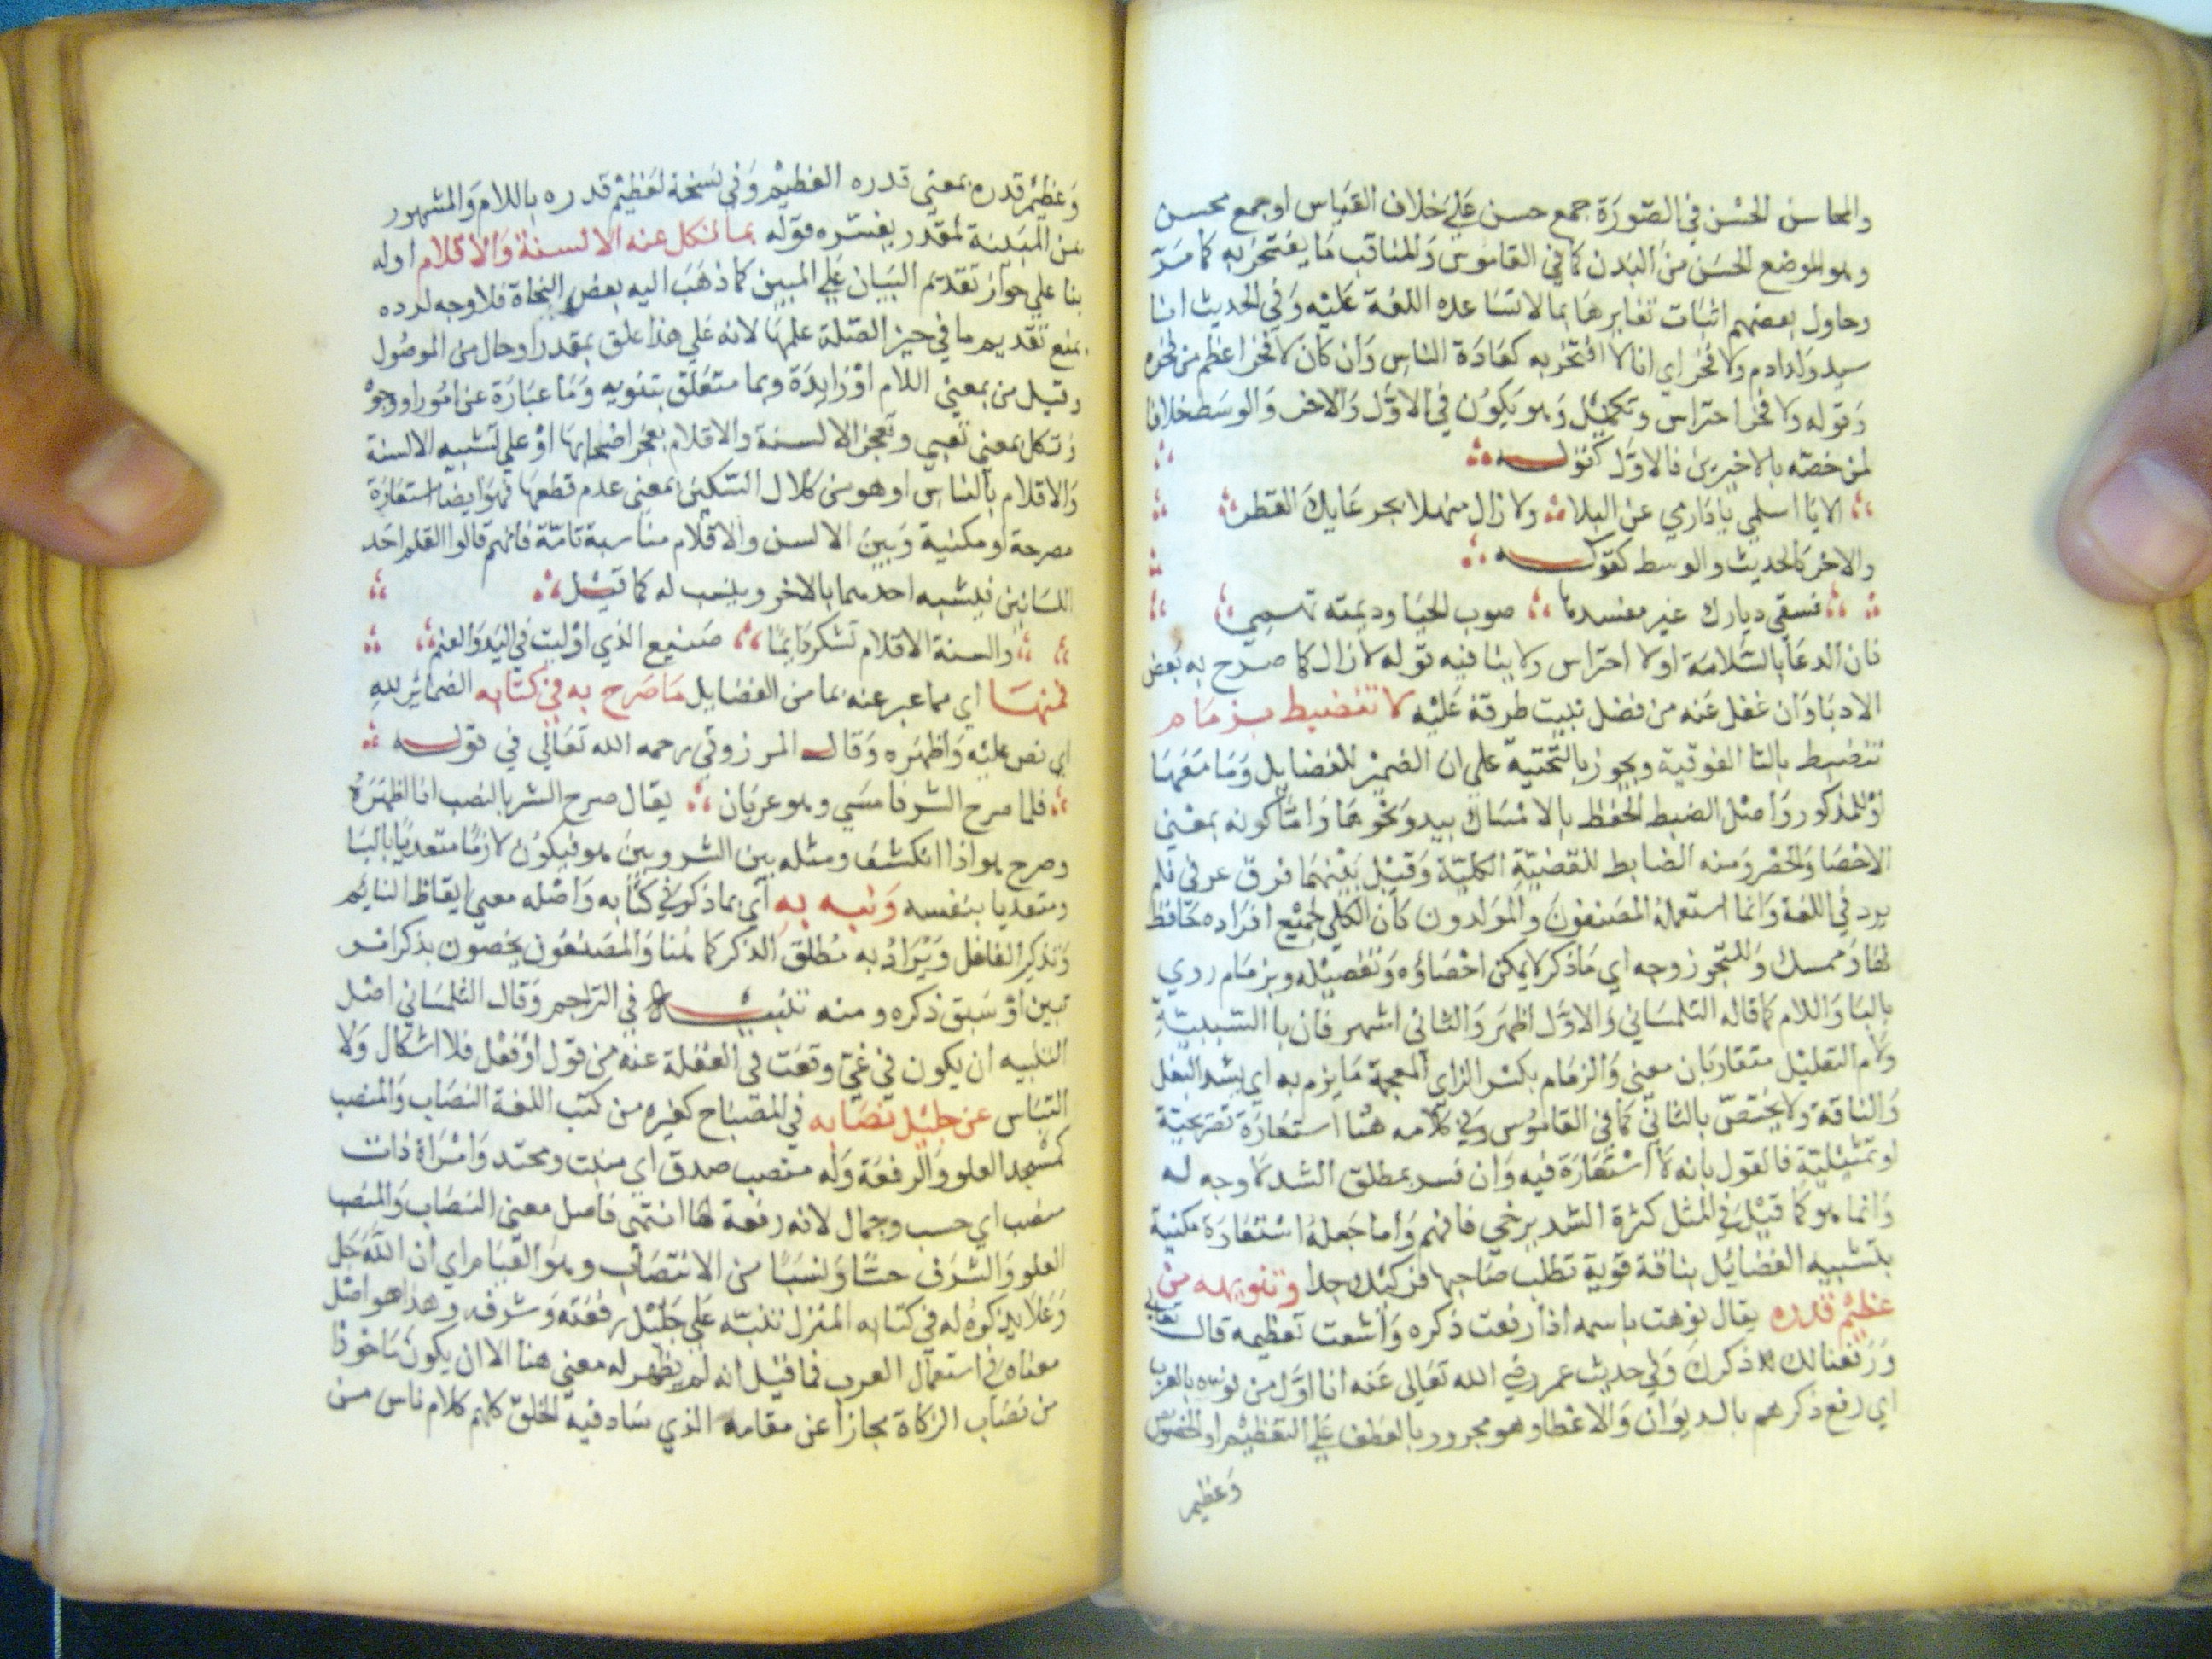 والمحاسن الحسن في الصورة جمع حسن علي خلاف القياس او جمع محسن
وهو الموضع الحسن من البدن كما في القاموس والمناقب ما يفتخر به كما مر
وحاول بعضهم اثبات تغايرها بما لا تساعده اللغة عليه وفي الحديث انا
سيد ولد ادم ولا فخر اي انا لا افتخر به كعادة الناس وان كان لا فخر اعظم من فخره
وقوله ولا فخر احتراس وتكميل وهو يكون في الاول والاخر والوسط خلافا
لمن خصه بالاخيرين فالاول كقوله
الا يا اسلمي يا دارمي عن البلا ولا زال منهلا بجرعايك القطر
والاخر كالحديث والوسط كقوله
فسقي ديارك غير مفسدها صوب الحيا وديمته تهمي
فان الدعا بالسلامة اولا احتراس ولا ينافيه قوله لا زال كما صرح به بعض
الادبا وان غفل عنه من فضل تبيت طرفة عليه لا تنضبط بزمام
تنضبط بالتا الفوقية ويجوز بالتحتية علي ان الضمير للفضايل وما معها
او للمذكور واصل الضبط الحفظ بالامساك بيد ونحوها واما كونه بمعني
الاحصا والحصر ومنه الضابط للقضية الكلية وقيل بينهما فرق عرفي فلم
يرد في اللغة وانما استعمله المصنفون والمولدون كان الكلي لجميع افراده حافظ
لها وممسك وللتجوز وجه اي ما ذكر لا يمكن احصاؤه وتفصيله وبزمام روي
بالبا واللام كما قاله التلمساني والاول اظهر والثاني اشهر فان با السببية
ولام التعليل متقاربان معني والزمام بكسر الزاي المعجمة ما يزم به اي يشد البغل
والناقة ولا يختص بالثاني كما في القاموس وفي كلامه هنا استعارة تصريحية
او تمثيلية فالقول بانه لا استعارة فيه وان فسر بمطلق الشد لا وجه له
وانما هو كما قيل في المثل كثرة الشد يرخي فافهم واما جعله استعارة مكنية
بتشبيه الفضايل بناقة قوية تطلب صاحبها فركيك جدا وتنويهه من
عظيم قدره يقال نوهت باسمه اذا رفعت ذكره واشعت تعظيمه قال تعالي
ورفعنا لك ذكرك وفي حديث عمر رضي الله تعالي عنه انا اول من نوه بالعرب
اي رفع ذكرهم بالديوان والاعطا وهو مجرور بالعطف علي التعظيم او الخصوص
وعظيم
وعظيم قدره بمعني قدره العظيم وفي نسخة لعظيم قدره باللام والمشهور
من المبينة لمقدر يفسره قوله بما تكل عنه الالسنة والاقلام او له
بنا علي جواز تقديم البيان علي المبين كما ذهب اليه بعض النحاة فلا وجه لرده
بمنع تقديم ما في حيز الصلة عليها لانه علي هذا علق بمقدر او حال من الموصول
وقيل من بمعني اللام او زايدة وبما متعلق بتنويه وما عبارة عن امور او وجوه
وتكل بمعني تعيي وتعجز الالسنة والاقلام بعجز اصحابها او علي تشبيه الالسنة
والاقلام بالناس او هو من كلال السكين بمعني عدم قطعها فهو ايضا استعارة
مصرحة او مكنية وبين الالسن والاقلام مناسبة تامة فانهم قالوا القلم احد
اللسانين فيشبه احدهما بالاخر وينسب له كما قيل
والسنة الاقلام تشكر دايما صنيع الذي اوليت في اليد والفم
فمنها اي مما عبر عنه بما من الفضايل ما صرح به في كتابه الضماير لله
اي نص عليه واظهره وقال المرزوقي رحمه الله تعالي في قوله
فلما صرح الشر فامسي وهو عريان يقال صرح الشر بالنصب اذا اظهره
وصرح هو اذا انكشف ومثله بين الشر وبين هو فيكون لازما متعديا بالبا
ومتعديا بنفسه ونبه به اي بما ذكر في كتابه واصله معني ايقاظ النايم
وتذكير الغافل ويراد به مطلق الذكر كما هنا والمصنفون يخصون بذكر امر
تبين او سبق ذكره ومنه تنبيه في التراجم وقال التلمساني اصل
التنبيه ان يكون في غي وقعت في الغفلة عنه من قول او فعل فلا اشكال ولا
التباس عن جليل نصابه في المصباح كغيره من كتب اللغة النصاب والمنصب
كمسجد العلو والرفعة وله منصب صدق اي منبت ومحتد وامراة ذات
منصب اي حسب وجمال لانه رفعة لها انتهي فاصل معني النصاب والمنصب
العلو والشرف حسا ونسبا من الانتصاب وهو القيام اي ان الله جل
وعلا بذكره له في كتابه المنزل تنبه علي جليل رفعته وشرفه وهذا هو اصل
معناه في استعمال العرب فما قيل انه لم يظهر له معني هنا الا ان يكون ماخوذا
من نصاب الزكاة مجازا عن مقامه الذي ساد فيه الخلق كلهم كلام ناس من